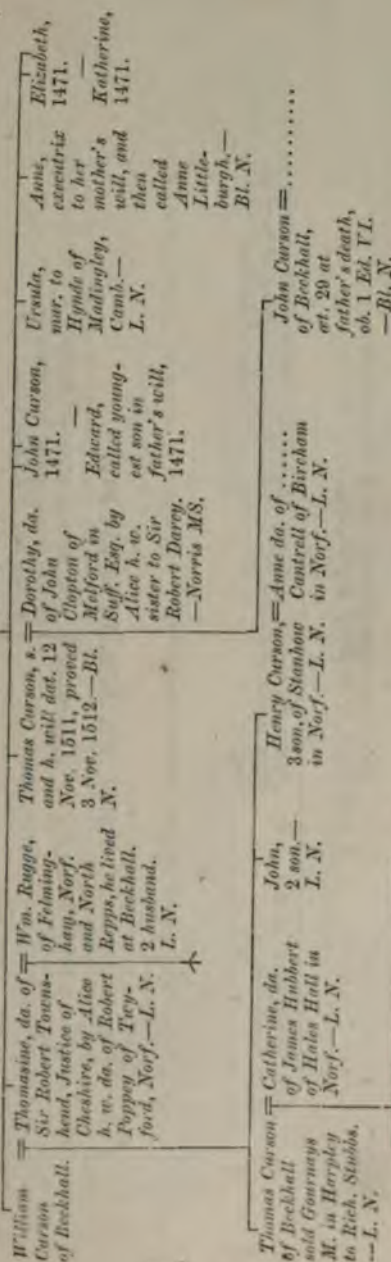 William
Curson
of Beckhall.
= Thomasine, da. of
Sir Robert Towns-
hend, Justice of
Cheshire, by Alice
h. w. da. of Robert
Poppey of Twy-
ford, Norf.—L. N.
= Wm. Rugge,
of Felming-
ham, Norf.
and North
Repps, he lived
at Beckhall.
2 husband.
L. N.
Thomas Curson, s.
and h. will dat. 12
Nov. 1511, proved
3 Nov. 1512.—Bl.
N.
= Dorothy, da.
of John
Clopton of
Melford in
Suff. Esq. by
Alice h. w.
sister to Sir
Robert Darcy.
—Norris MS.
John Curson,
1471.
—
Edward,
called young-
est son in
father's will,
1471.
Ursula,
mar. to
Hynde of
Madingley,
Camb.—
L. N.
Anne,
executrix
to her
mother's
will, and
then
called
Anne
Little-
burgh.—
Bl. N.
Elizabeth,
1471.
—
Katherine,
1471.
Thomas Curson
of Beckhall
sold Gournays
M. in Harpley
to Rich. Stubbs.
—L. N.
= Catherine, da.
of James Hubbert
of Hales Hall in
Norf.—L. N.
John,
2 son.—
L. N.
Henry Curson,
3 son, of Stanhow
in Norf.—L. N.
= Anne da. of ......
Cantrell of Bircham
in Norf.—L. N.
John Curson = ...........
of Beckhall,
æt. 29 at
father's death,
ob. 1 Ed. VI.
—Bl. N.